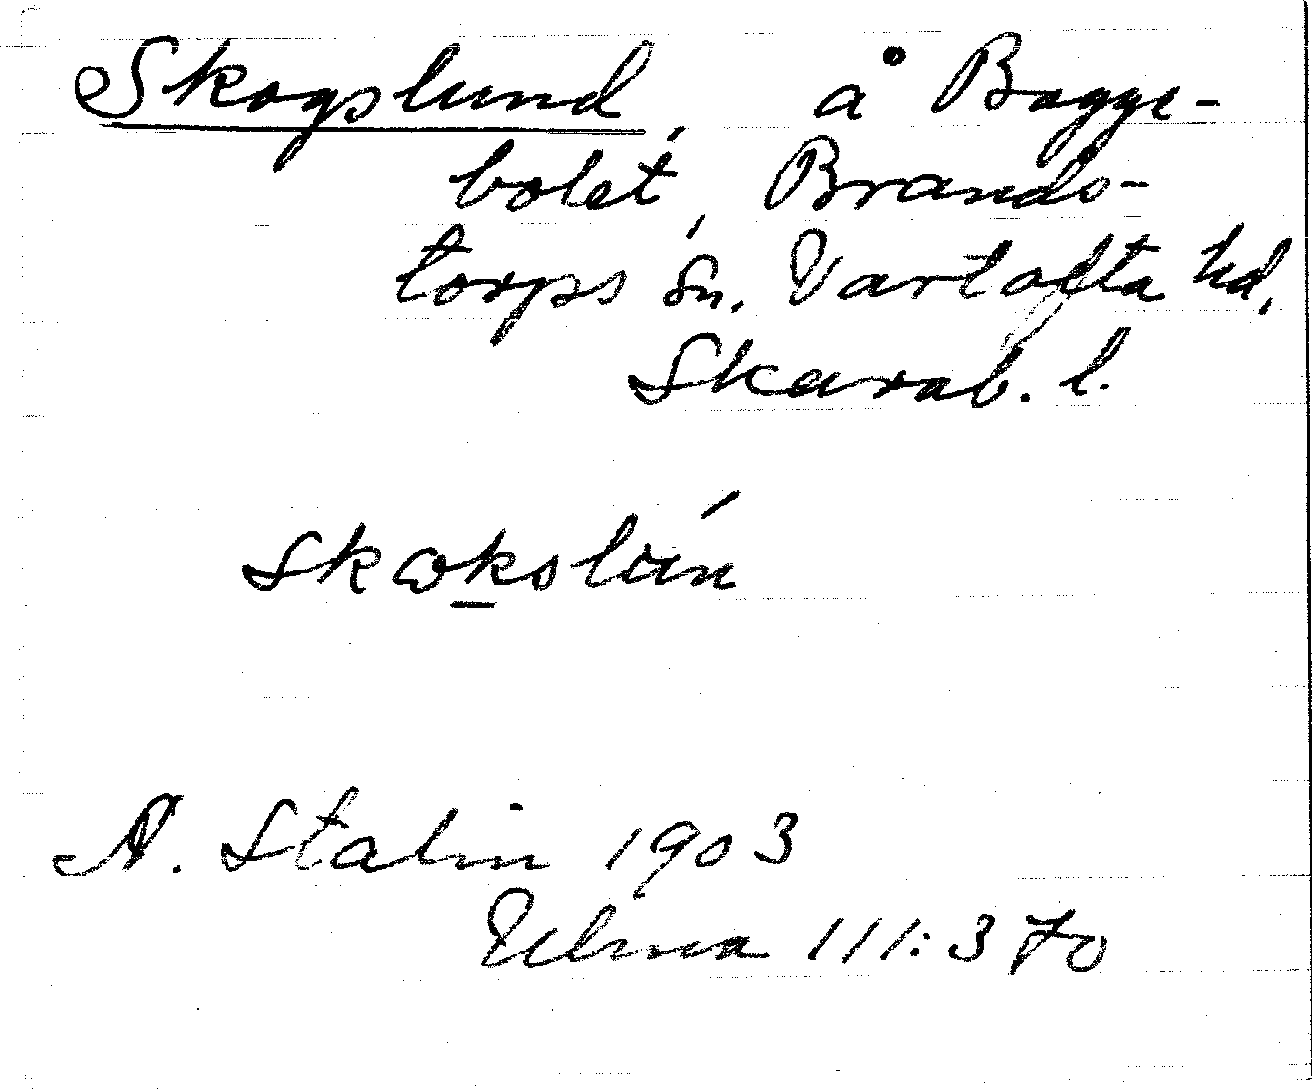 Skogslund, å Bogge-
bolet, Brands-
torps sn. Vartofta hd,
Skarab. l.
A. Stalin 1903
Ulma 111:370